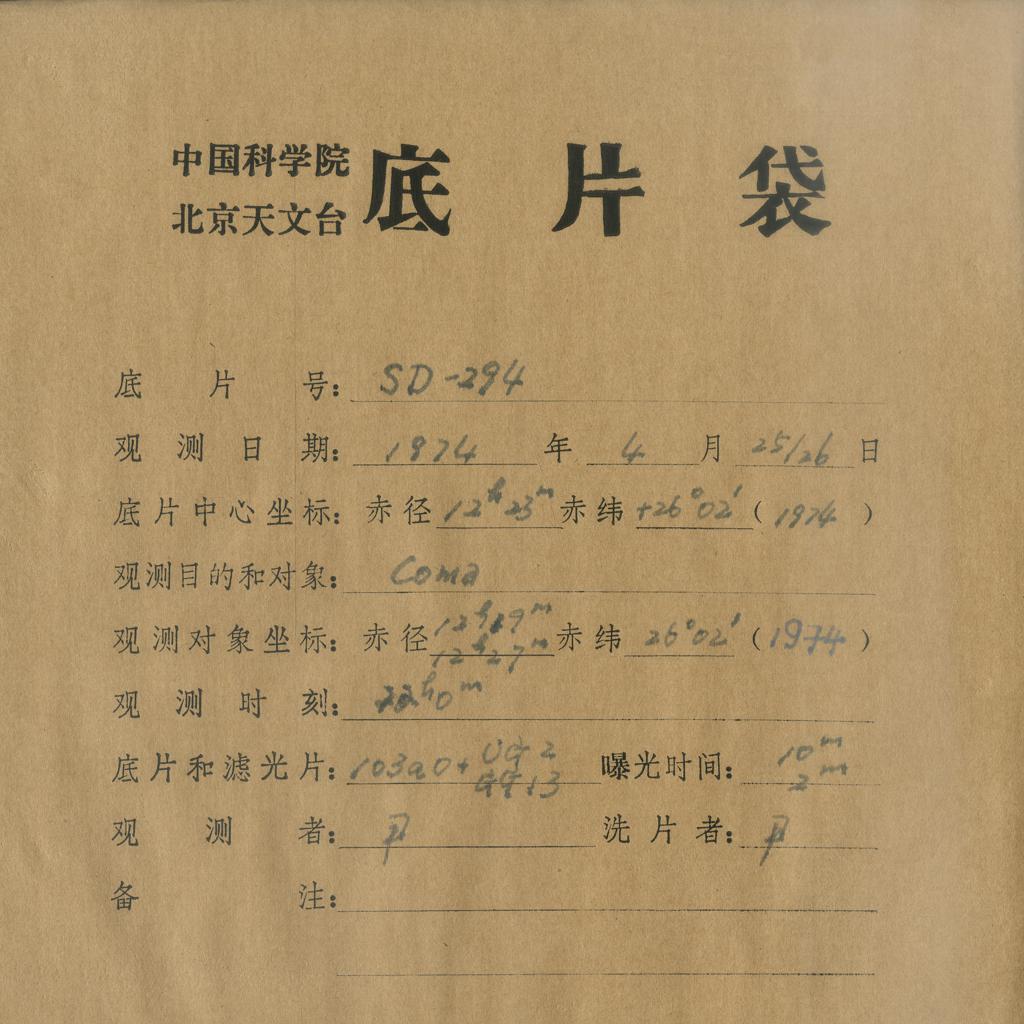 中国科学院
北京天文台
底片袋
底片号：SD-294
观测日期：1974年4月25/26日
底片中心坐标：赤径12ʰ23ᵐ赤纬+26°02′（1974）
观测目的和对象：Coma
观测对象坐标：赤径12ʰ19ᵐ赤纬26°02′（1974）
12ʰ27ᵐ
观测时刻：22ʰ0ᵐ
底片和滤光片：103aO+UG2 曝光时间：10ᵐ
GG13 2ᵐ
观测者：尹 洗片者：尹
备注：